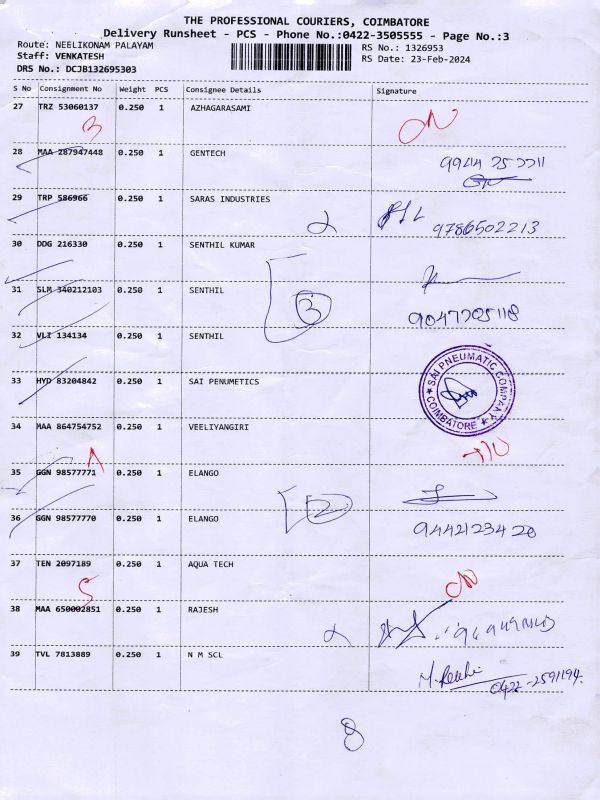 THE PROFESSIONAL COURIERS, COIMBATORE
Delivery Runsheet - PCS - Phone No.:0422-3505555 - Page No.:3
Route: NEELIKONAM PALAYAM
RS No.: 1326953
Staff: VENKATESH
RS Date: 23-Feb-2024
DRS No.: DCJB132695303
S No Consignment No Weight PCS Consignee Details Signature
27 TRZ 53060137 0.250 1 AZHAGARASAMI
28 MAA 287947448 0.250 1 GENTECH
29 TRP 586966 0.250 1 SARAS INDUSTRIES
9786502213
30 DDG 216330 0.250 1 SENTHIL KUMAR
31 SLM 340212103 0.250 1 SENTHIL
3
32 VLI 134134 0.250 1 SENTHIL
33 HYD 83204842 0.250 1 SAI PENUMETICS
SAI PNEUMATIC COMPANY
COIMBATORE
34 MAA 864754752 0.250 1 VEELIYANGIRI
35 GGN 98577771 0.250 1 ELANGO
2
36 GGN 98577770 0.250 1 ELANGO
9442123420
37 TEN 2097189 0.250 1 AQUA TECH
38 MAA 650002851 0.250 1 RAJESH
39 TVL 7813889 0.250 1 N M SCL
0422-2591194
8